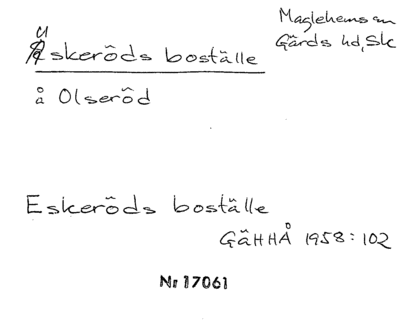 Äskeröds boställe
Maglehems sn
Gärds hd, Sk
å Olseröd
Eskeröds boställe
GäHHÅ 1958:102
Nr 17061